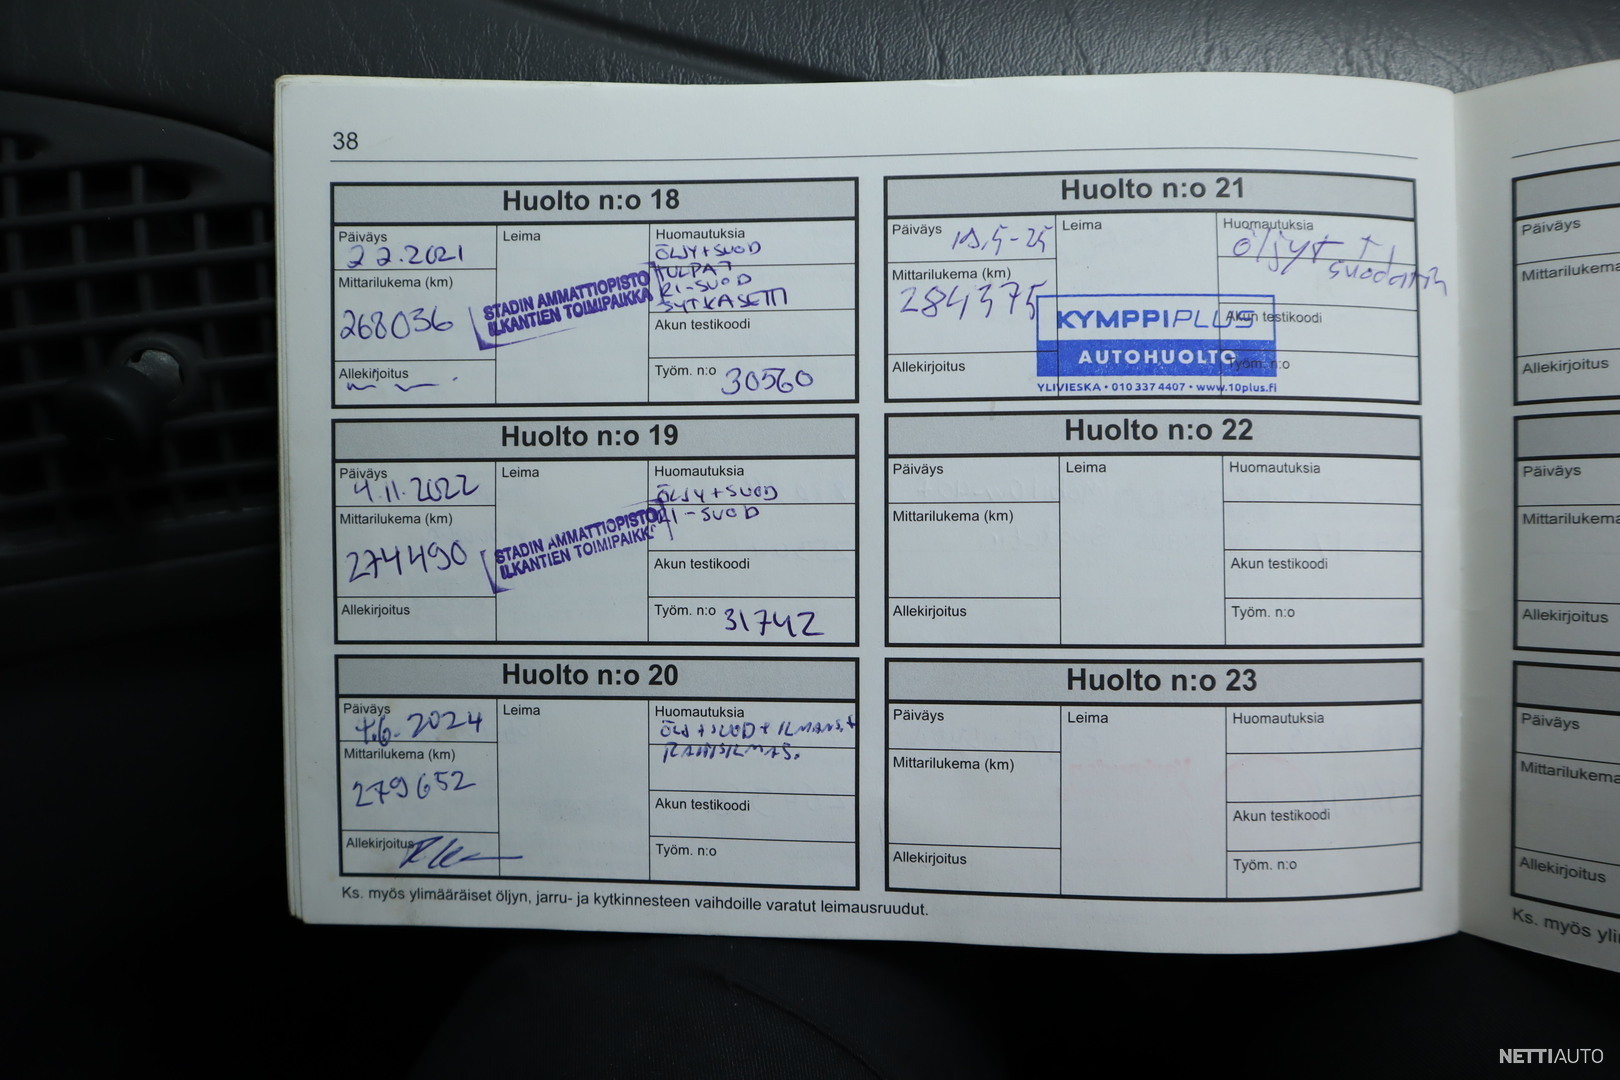 38
Huolto n:o 18
Päiväys
2 2.2021
Leima
Huomautuksia
ÖLJY+SUOD
TULPAT
RI-SUOD
SYTKASETTI
Mittarilukema (km)
268036
STADIN AMMATTIOPISTO
ILKANTIEN TOIMIPAIKKA
Akun testikoodi
Allekirjoitus
Työm. n:o 30560
Huolto n:o 19
Päiväys
4.11.2022
Leima
Huomautuksia
ÖLJY+SUOD
RI-SUOD
Mittarilukema (km)
274490
STADIN AMMATTIOPISTO
ILKANTIEN TOIMIPAIKK
Akun testikoodi
Allekirjoitus
Työm. n:o 31742
Huolto n:o 20
Päiväys
4.6.2024
Leima
Huomautuksia
ÖLJ+SUOD+ILMANS.+
RAITISILMAS.
Mittarilukema (km)
279652
Akun testikoodi
Allekirjoitus
Työm. n:o
Ks. myös ylimääräiset öljyn, jarru- ja kytkinnesteen vaihdoille varatut leimausruudut.
Huolto n:o 21
Päiväys
19.5-25
Leima
Huomautuksia
öljyt + suodatin
Mittarilukema (km)
284375
KYMPPIPLUS
AUTOHUOLTO
YLIVIESKA • 010 337 4407 • www.10plus.fi
Akun testikoodi
Allekirjoitus
Työm. n:o
Huolto n:o 22
Päiväys
Leima
Huomautuksia
Mittarilukema (km)
Akun testikoodi
Allekirjoitus
Työm. n:o
Huolto n:o 23
Päiväys
Leima
Huomautuksia
Mittarilukema (km)
Akun testikoodi
Allekirjoitus
Työm. n:o
Päiväys
Mittarilukema
Allekirjoitus
Päiväys
Mittarilukema
Allekirjoitus
Päiväys
Mittarilukema
Allekirjoitus
Ks. myös yli
NETTIAUTO